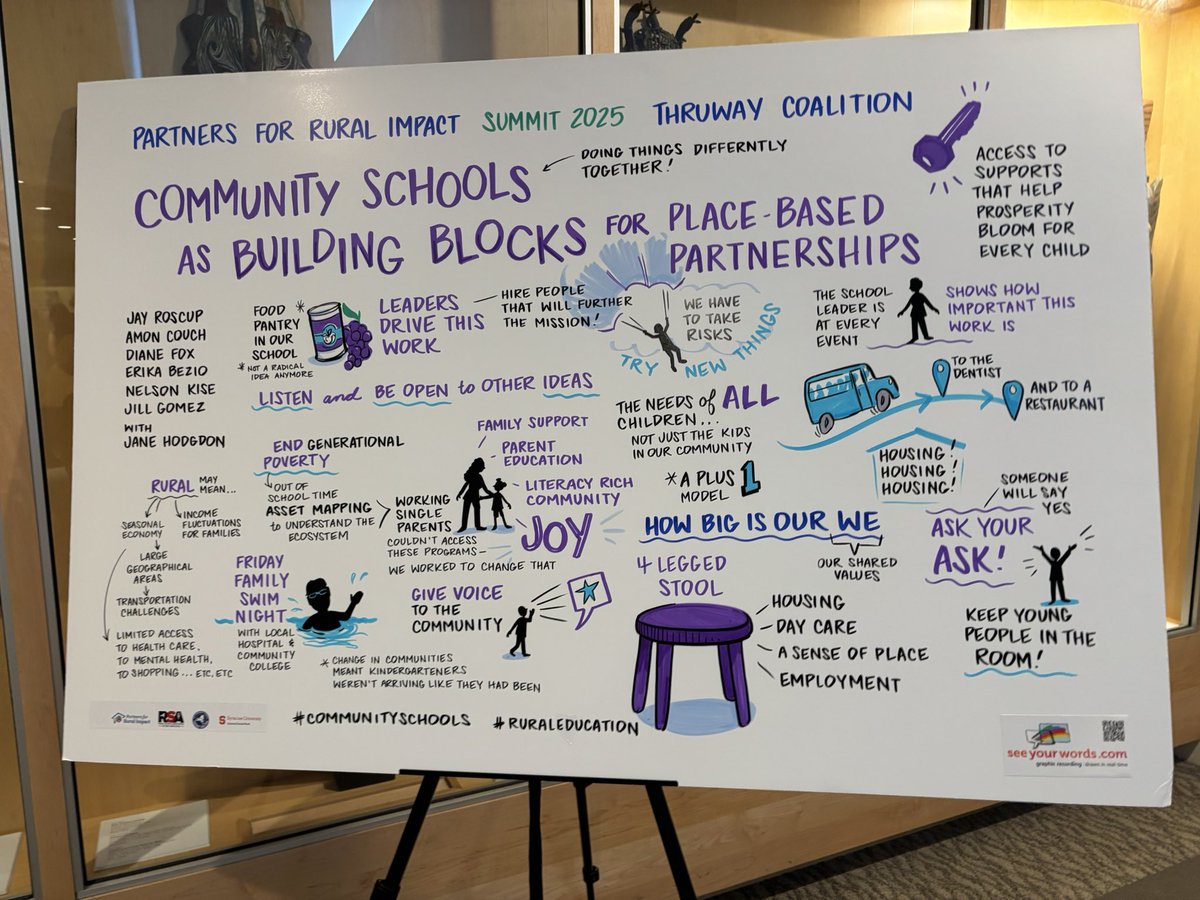 PARTNERS FOR RURAL IMPACT SUMMIT 2025 THRUWAY COALITION
DOING THINGS DIFFERNTLY
TOGETHER!
COMMUNITY SCHOOLS
AS BUILDING BLOCKS FOR PLACE-BASED
PARTNERSHIPS
ACCESS TO
SUPPORTS
THAT HELP
PROSPERITY
BLOOM FOR
EVERY CHILD
JAY ROSCUP
AMON COUCH
DIANE FOX
ERIKA BEZIO
NELSON KISE
JILL GOMEZ
WITH
JANE HODGDON
FOOD *
PANTRY
IN OUR
SCHOOL
* NOT A RADICAL
IDEA ANYMORE
LEADERS
DRIVE THIS
WORK
HIRE PEOPLE
THAT WILL FURTHER
THE MISSION!
WE HAVE
TO TAKE
RISKS
TRY NEW THINGS
THE SCHOOL
LEADER IS
AT EVERY
EVENT
SHOWS HOW
IMPORTANT THIS
WORK IS
LISTEN and BE OPEN to OTHER IDEAS
THE NEEDS of ALL
CHILDREN...
NOT JUST THE KIDS
IN OUR COMMUNITY
* A PLUS 1
MODEL
TO THE
DENTIST
AND TO A
RESTAURANT
HOUSING!
HOUSING!
HOUSING!
END GENERATIONAL
POVERTY
OUT OF
SCHOOL TIME
ASSET MAPPING
to UNDERSTAND THE
ECOSYSTEM
FAMILY SUPPORT
PARENT
EDUCATION
LITERACY RICH
COMMUNITY
JOY
WORKING
SINGLE
PARENTS
COULDN'T ACCESS
THESE PROGRAMS—
WE WORKED TO CHANGE THAT
RURAL MAY
MEAN...
SEASONAL
ECONOMY
INCOME
FLUCTUATIONS
FOR FAMILIES
LARGE
GEOGRAPHICAL
AREAS
TRANSPORTATION
CHALLENGES
LIMITED ACCESS
TO HEALTH CARE,
TO MENTAL HEALTH,
TO SHOPPING... ETC, ETC
FRIDAY
FAMILY
SWIM
NIGHT
WITH LOCAL
HOSPITAL &
COMMUNITY
COLLEGE
GIVE VOICE
TO THE
COMMUNITY
* CHANGE IN COMMUNITIES
MEANT KINDERGARTENERS
WEREN'T ARRIVING LIKE THEY HAD BEEN
HOW BIG IS OUR WE
OUR SHARED
VALUES
4 LEGGED
STOOL
HOUSING
DAY CARE
A SENSE OF PLACE
EMPLOYMENT
SOMEONE
WILL SAY
YES
ASK YOUR
ASK!
KEEP YOUNG
PEOPLE IN THE
ROOM!
Partners for
Rural Impact
RSA
S Syracuse University
#COMMUNITYSCHOOLS #RURALEDUCATION
seeyourwords.com
graphic recording drawn in real-time